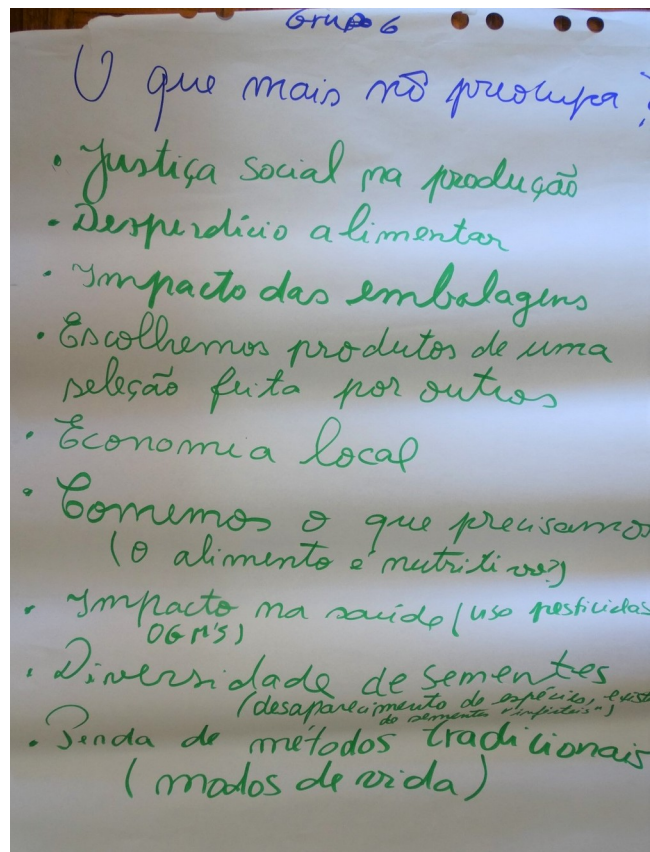 Grupo 6
O que mais nõ preocupa?
• Justiça social na produção
• Desperdício alimentar
• Impacto das embalagens
• Escolhemos produtos de uma
seleção feita por outros
• Economia local
• Comemos o que precisamos
(o alimento é nutritivo?)
• Impacto na saúde (uso pesticidas
OGM'S)
• Diversidade de sementes
(desaparecimento de espécies,
de sementes
• Perda de métodos tradicionais
(modos de vida)